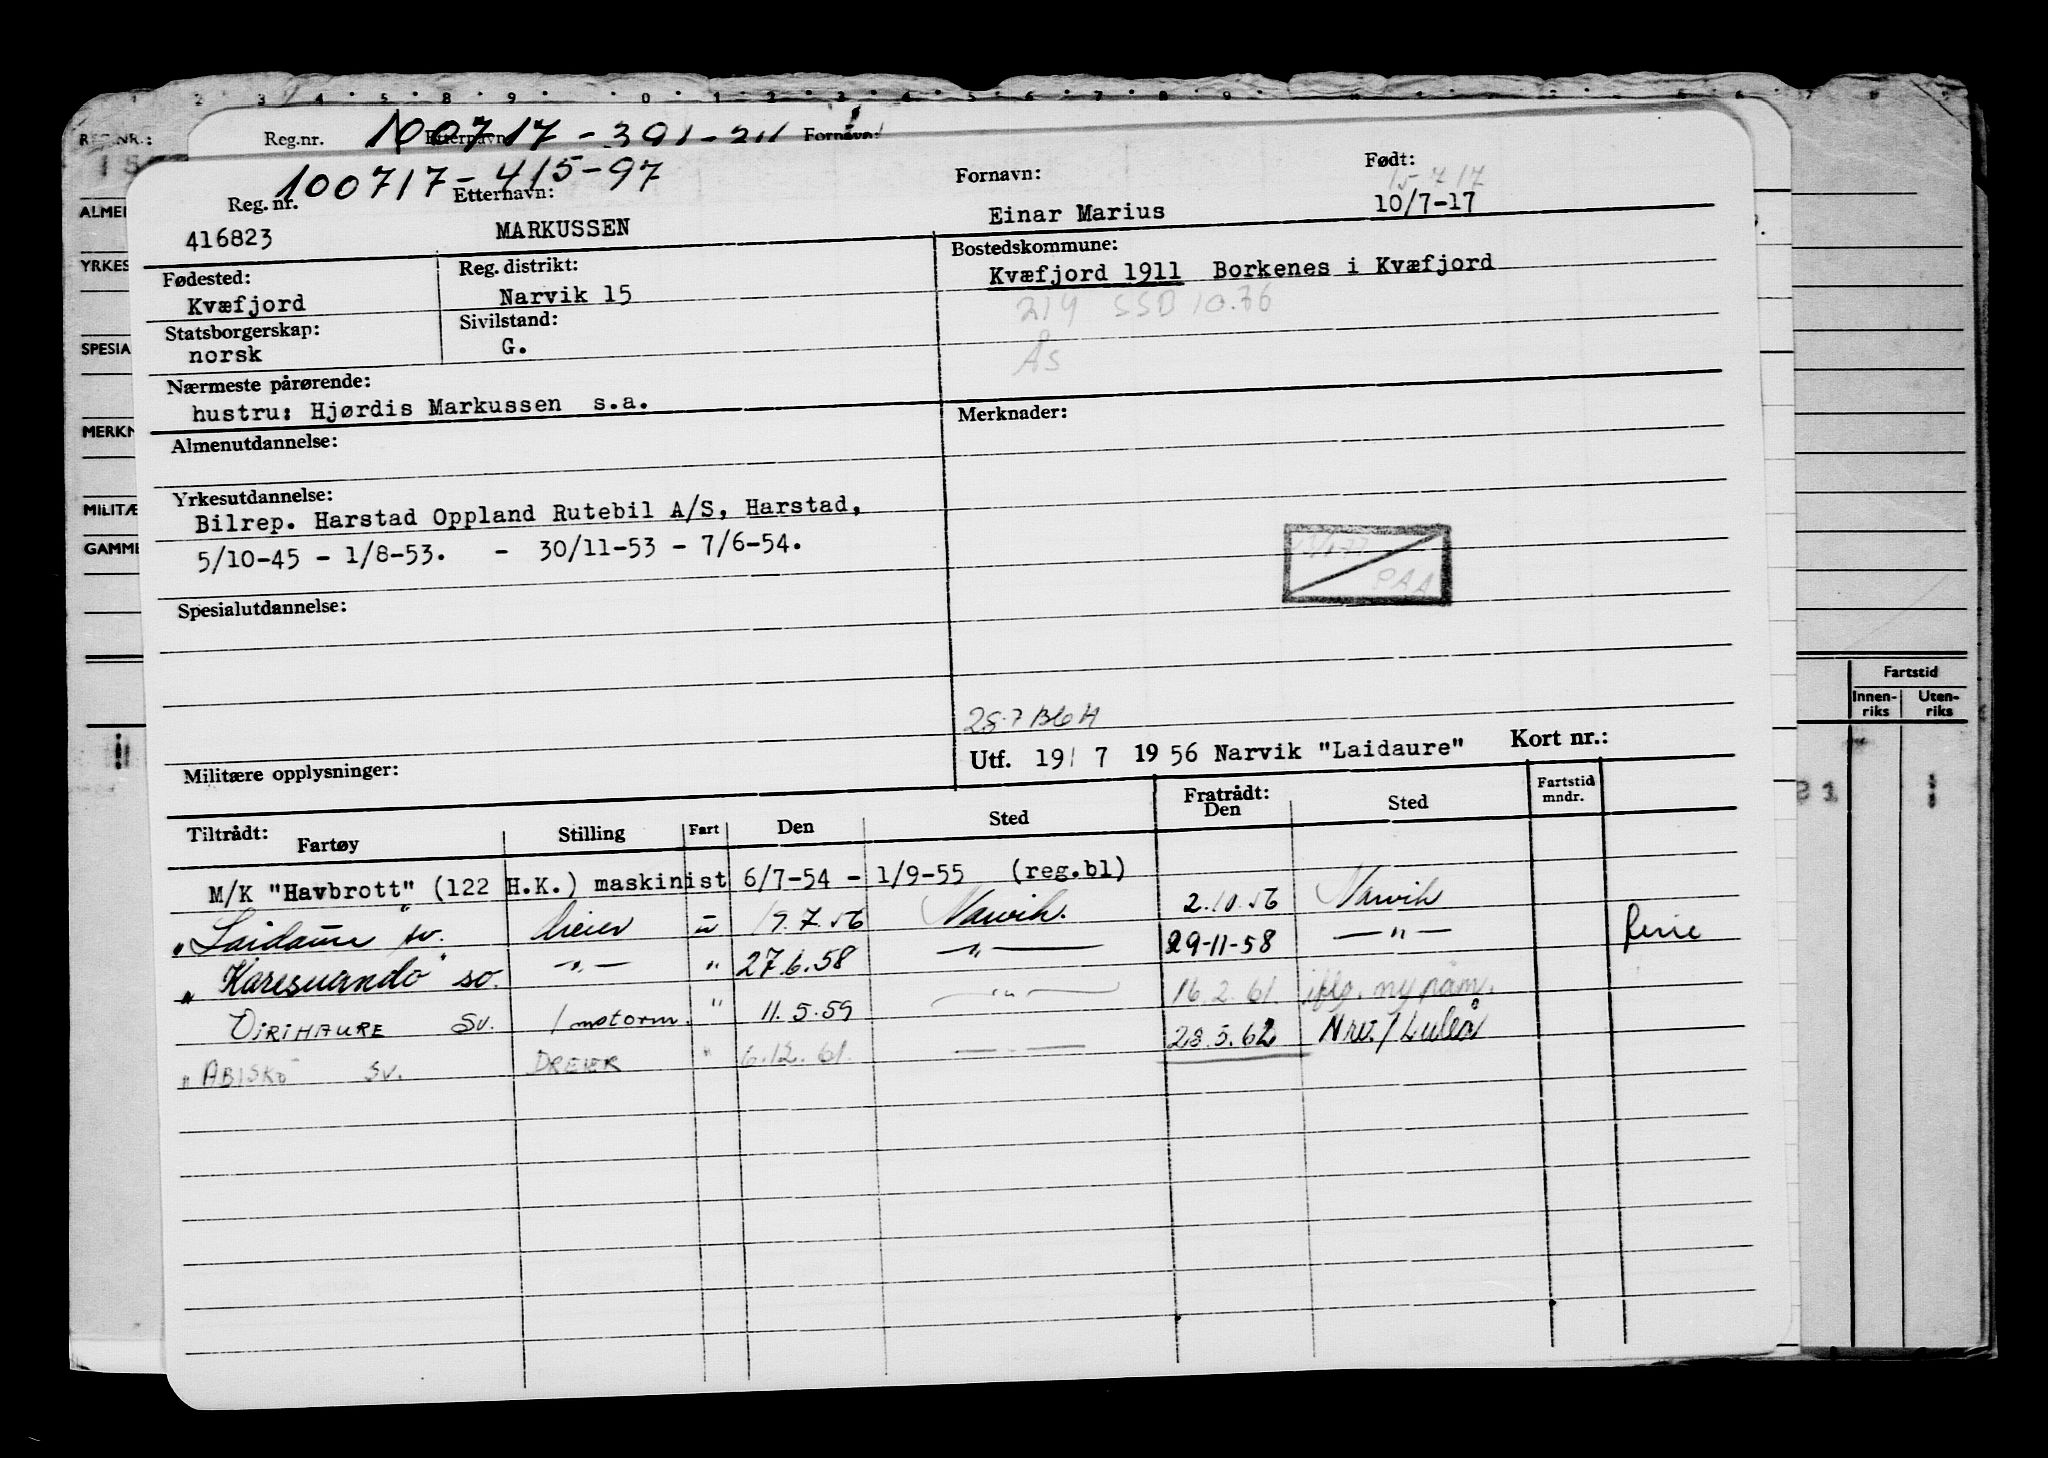 REG.NR.: Reg.nr. 100717 - 391 - Etternavn Fornavn:
ALMEI
YRKES
SPESIA
MERKN
MILITÆ
GAMME
Fartstid
Innen-riks Uten-riks
100717 - 415 - 97
Reg. nr. Etternavn: Fornavn: Født:
15 7 17
416823 MARKUSSEN Einar Marius 10/7-17
Fødested: Reg. distrikt: Bostedskommune:
Kvæfjord Narvik 15 Kvæfjord 1911 Borkenes i Kvæfjord
219 SSB 10.76
Statsborgerskap: Sivilstand:
norsk G. Ås
Nærmeste pårørende:
hustru: Hjørdis Markussen s.a.
Almenutdannelse: Merknader:
Yrkesutdannelse:
Bilrep. Harstad Oppland Rutebil A/S, Harstad,
5/10-45 - 1/8-53. - 30/11-53 - 7/6-54.
PAA
Spesialutdannelse:
Militære opplysninger: Utf. 19/ 7 1956 Narvik "Laidaure" Kort nr.:
Tiltrådt: Fartøy Stilling Fart Den Sted Fratrådt: Den Sted Fartstid mndr.
M/K "Havbrott" (122 H.K.) maskinist 6/7-54 - 1/9-55 (reg.bl)
"Laidaure" sv. dreier u 19.7.56 Narvik. 2.10.56 Narvik
"Karesuando" sv. —"— " 27.6.58 —"— 29-11-58 —"— ferie
VIRIHAURE Sv. 1 motorm. " 11.5.59 —"— 16.2.61. iflg. ny påm.
" ABISKO Sv. DREIER " 6.12.61. — — 28.5.62 Nrv./Luleå